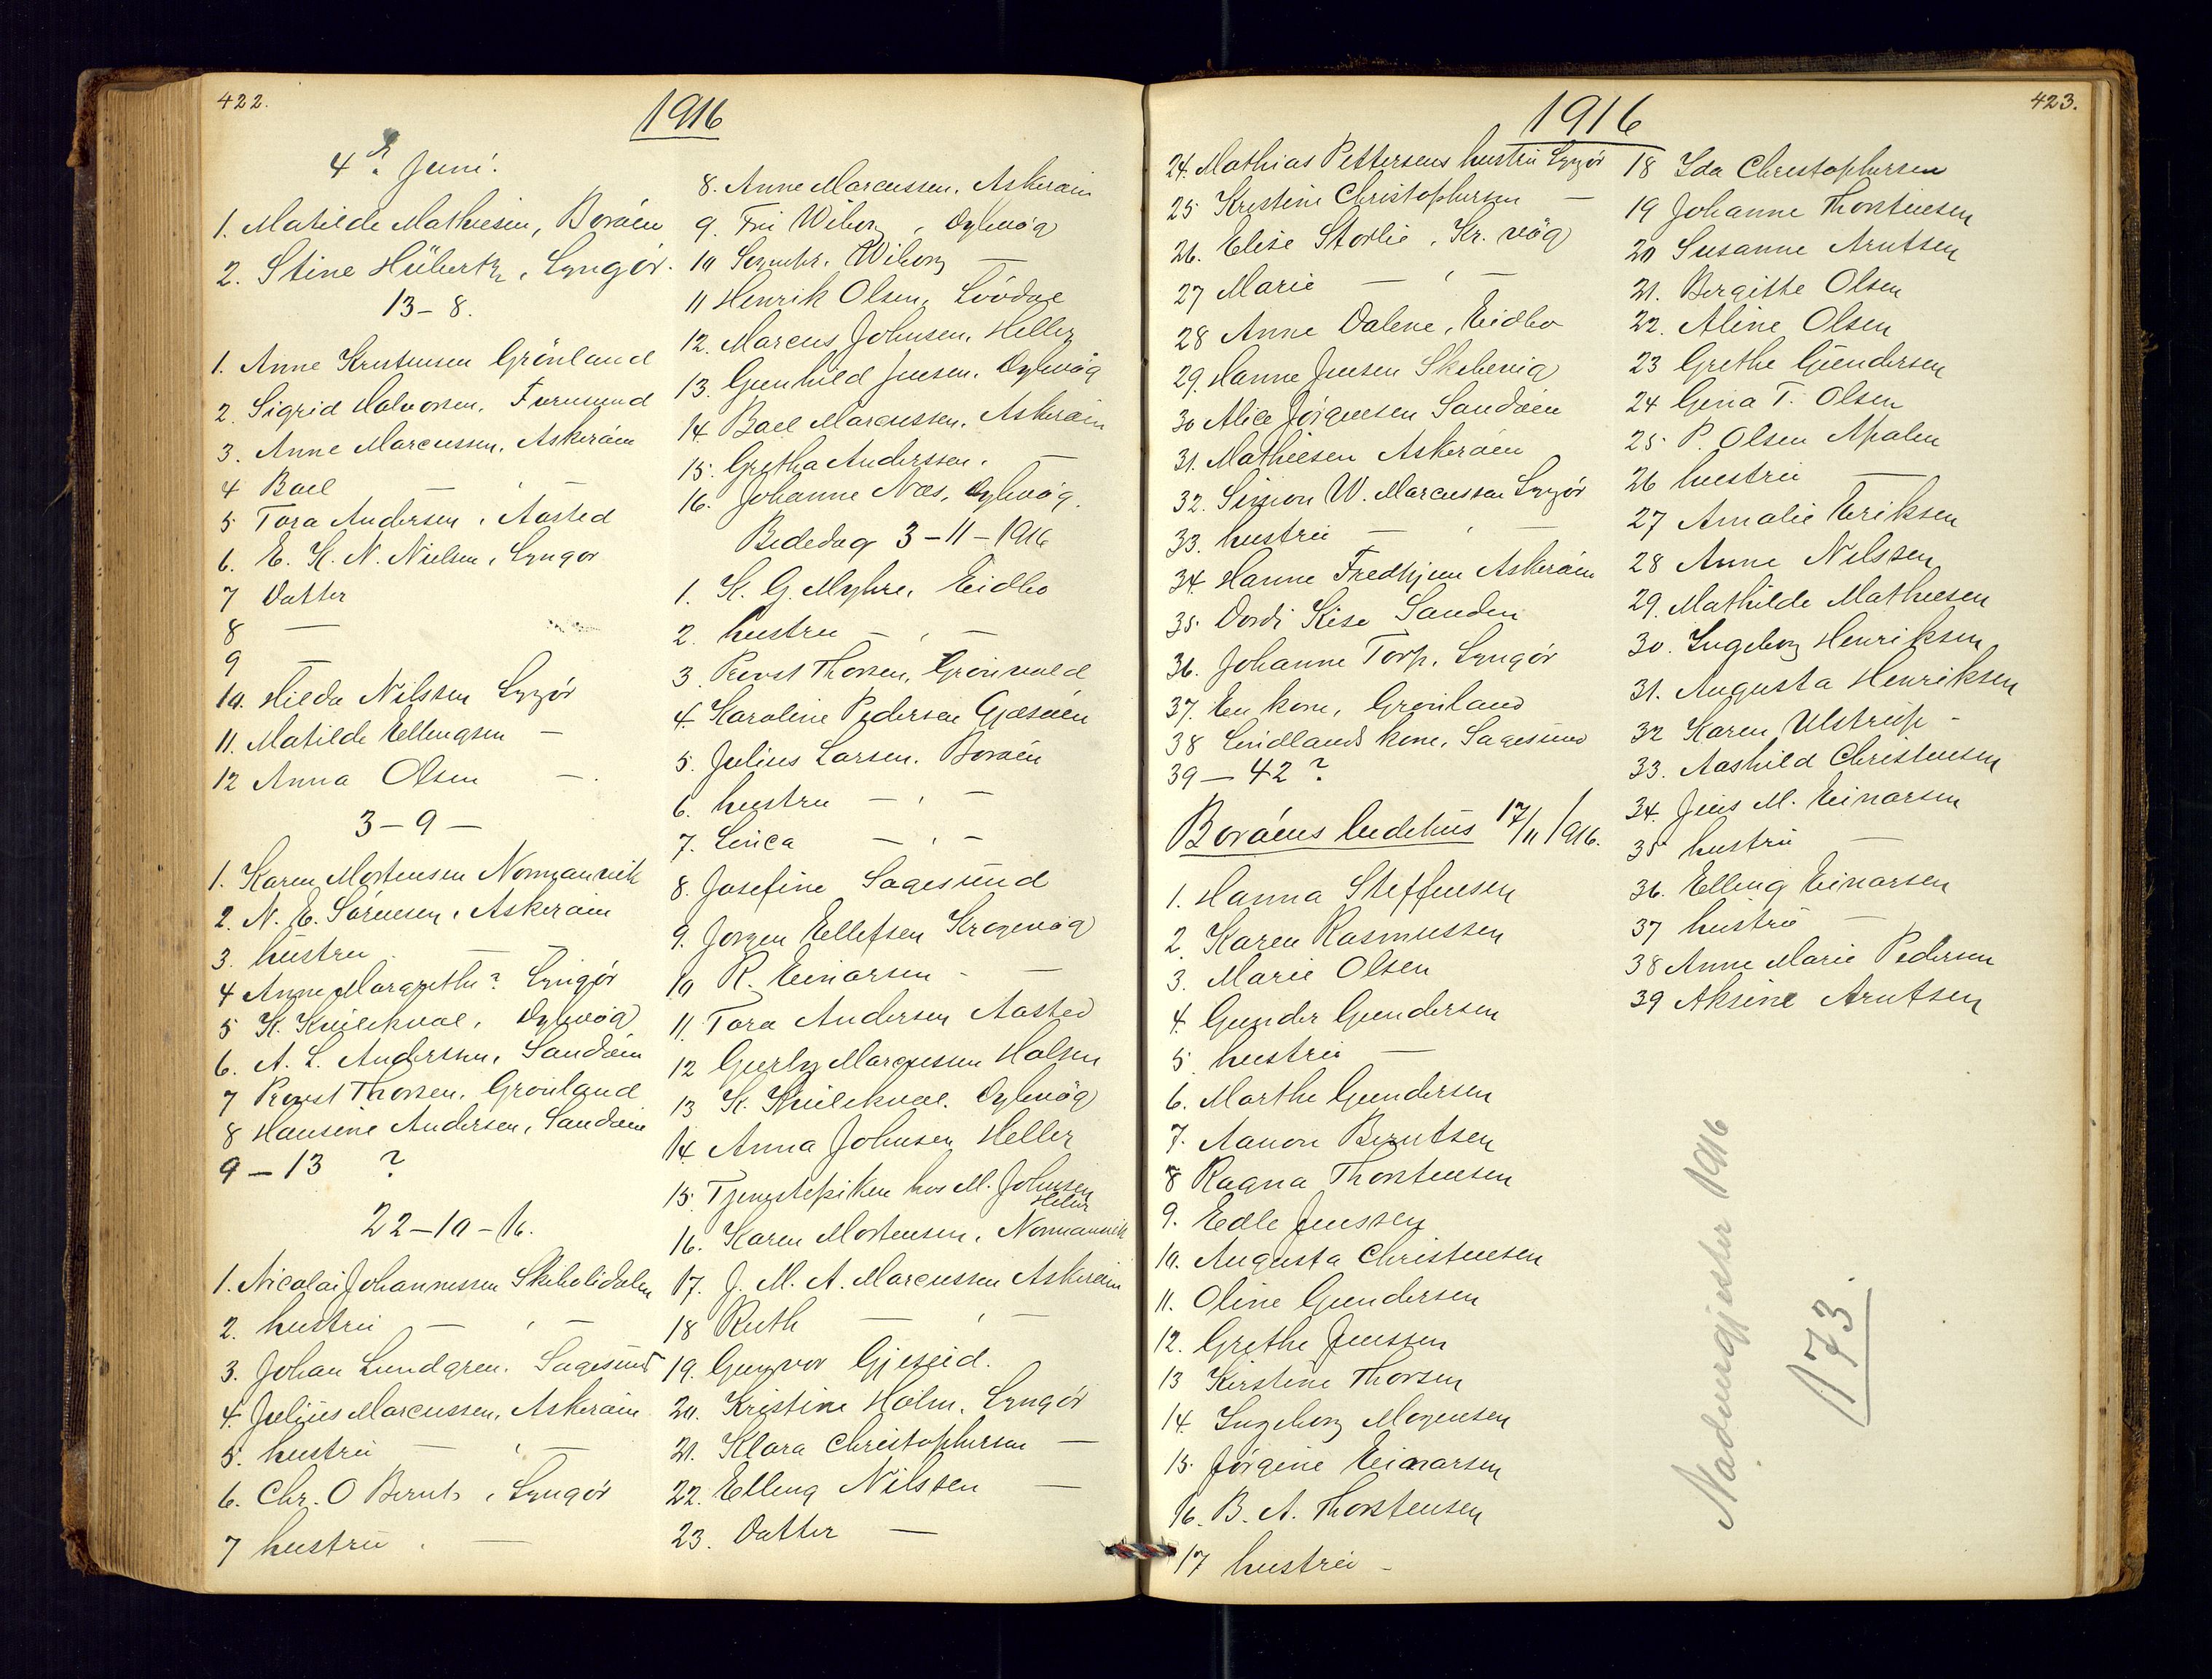 422.
1916
4de Juni.
1. Matilde Mathiesen, Boröen
2. Stine Hübertz, Lyngör.
13-8.
1. Anne Kristensen Grönland
2. Sigrid Halvorsen, Furusund
3. Anne Marcussen, Askeröen
4 Bael — , —
5 Tora Andersen, Aasted
6. E. K. N. Nielsen, Lyngör
7 Datter
8 —
9 —
10. Hilda Nilssen Lyngör
11. Matilde Ellingsen —
12 Anna Olsen —.
3-9-
1. Karen Mortensen Normanvik
2. N. E. Sörensen, Askeröen
3. hustru —
4 Anne Margrethe? Lyngör
5 K. Kvilekval, Dybvög
6. A. L. Andersen, Sandöen
7 Provst Thorsen, Grönland
8 Hansine Andersen, Sandöen
9-13 ?
22-10-16.
1. Nicolai Johannessen Skibolidalen
2. hustru — , —
3. Johan Lundgren, Sagesund
4. Julius Marcussen, Askeröen
5. hustru — , —
6. Chr. O Bernts, Lyngör
7 hustru , —
8. Anne Marcussen, Askeröen
9. Fru Wiborg, Dybvög
10 Wiborg —
11 Henrik Olsen, Lövdae
12. Marcus Johnsen, Heller
13. Gunhild Jensen, Dybvög
14. Bael Marcussen, Askeröen
15. Gretha Anderssen. —
16. Johanne Næs, Dybvög.
Bededag 3-11-1916
1. K. G. Myhre, Eidbo
2. hustru — , —
3. Provst Thorsen, Grönvold
4. Karoline Pedersen Gjæsöen
5. Julius Larsen, Boröen
6. hustru — , —
7. Lovica — , —
8. Josefine Sagesund
9. Jorgen Ellefsen Kragevög
10 R. Einarsen - —
11. Tora Andersen Aasted
12 Marcussen Holmen
13 K. Kvilekval, Dybvög
14. Anna Johnsen Heller
15. Tjenestepiken hos M. Johnsen
Heller
16. Karen Mortensen, Normanvik
17. J. M. A. Marcussen Askeröen
18 Ruth — , —
19. Gunvor Gjeseid.
20. Kristine Holm, Lyngör
21. Klara Christophersen —
22. Elling Nilssen —
23. Datter —
423.
1916
24. Mathias Pettersens hustru Lyngör
25 Kristine Christophersen —
26. Elise Storlie, Kr. vög
27 Marie — , —
28 Anne Dalene, Eidbo
29. Hanne Jensen Skibevig
30 Alice Jörgensen Sandöen
31. Mathiesen Askeröen
32. Simon W. Marcussen Lyngör
33. hustru — , —
34. Hanne Fredhjem Askeröen
35. Dordi Kise Sanden
36. Johanne Torp, Lyngör
37. En kone, Grönland
38 Lindlands kone, Sagesund
39 — 42 ?
Boröens bedehus 17/11 1916.
1. Hanna Steffensen
2. Karen Rasmussen
3. Marie Olsen
4. Gunder Gundersen
5. hustru —
6. Marthe Gundersen
7. Aanon Berntsen
8 Ragna Thorstensen
9. Edle Jenssen
10. Augusta Christensen
11. Oline Gundersen
12. Grethe Jenssen
13 Kirstine Thorsen
14. Ingeborg Mogensen
15. Jörgine Einarsen
16. B. A. Thorstensen
17 hustru -
18 Ida Christophersen
19 Johanne Thorstensen
20 Susanne Arntsen
21. Bergitte Olsen
22. Aline Olsen
23 Grethe Gundersen
24 Gina T. Olsen
25. P. Olsen Apalen
26 hustru —
27 Amalie Eriksen
28 Anne Nilssen
29. Mathilde Mathiesen
30. Ingeborg Henriksen
31. Augusta Henriksen
32 Karen Ulstrup -
33. Aashild Christensen
34. Jens M. Einarsen
35 hustru —
36. Elling Einarsen
37 hustru —
38 Anne Marie Pedersen
39 Aksine Arntsen
Nadverdgjester 1916
173.